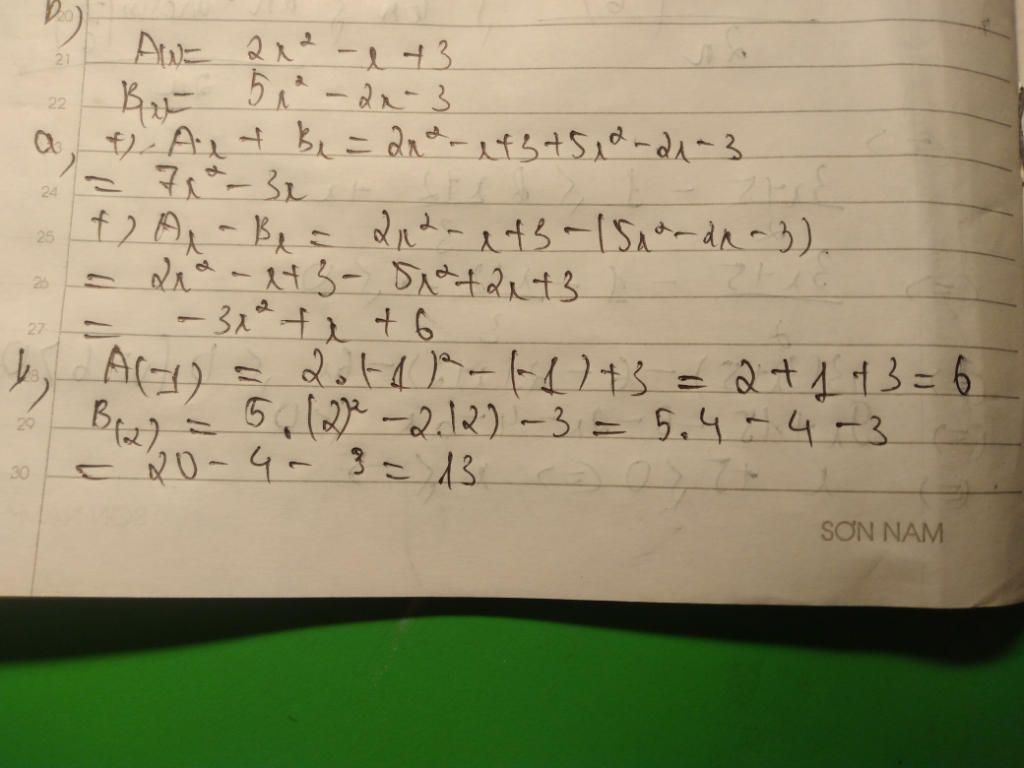 b)
20
21 A(x)= 2x² - x + 3
22 B(x)= 5x² - 2x - 3
a, +) Ax + Bx = 2x² - x + 3 + 5x² - 2x - 3
24 = 7x² - 3x
25 +) Ax - Bx = 2x² - x + 3 - (5x² - 2x - 3)
26 = 2x² - x + 3 - 5x² + 2x + 3
27 = -3x² + x + 6
b, A(-1) = 2.(-1)² - (-1) + 3 = 2 + 1 + 3 = 6
29 B(2) = 5.(2)² - 2.(2) - 3 = 5.4 - 4 - 3
30 = 20 - 4 - 3 = 13
SƠN NAM